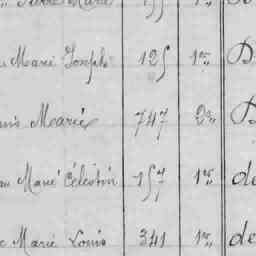 Marie 155 1re
Marie Joseph 125 1re D
Marie 747 2e
Marie Célestin 157 1re de
Marie Louis 341 1re de